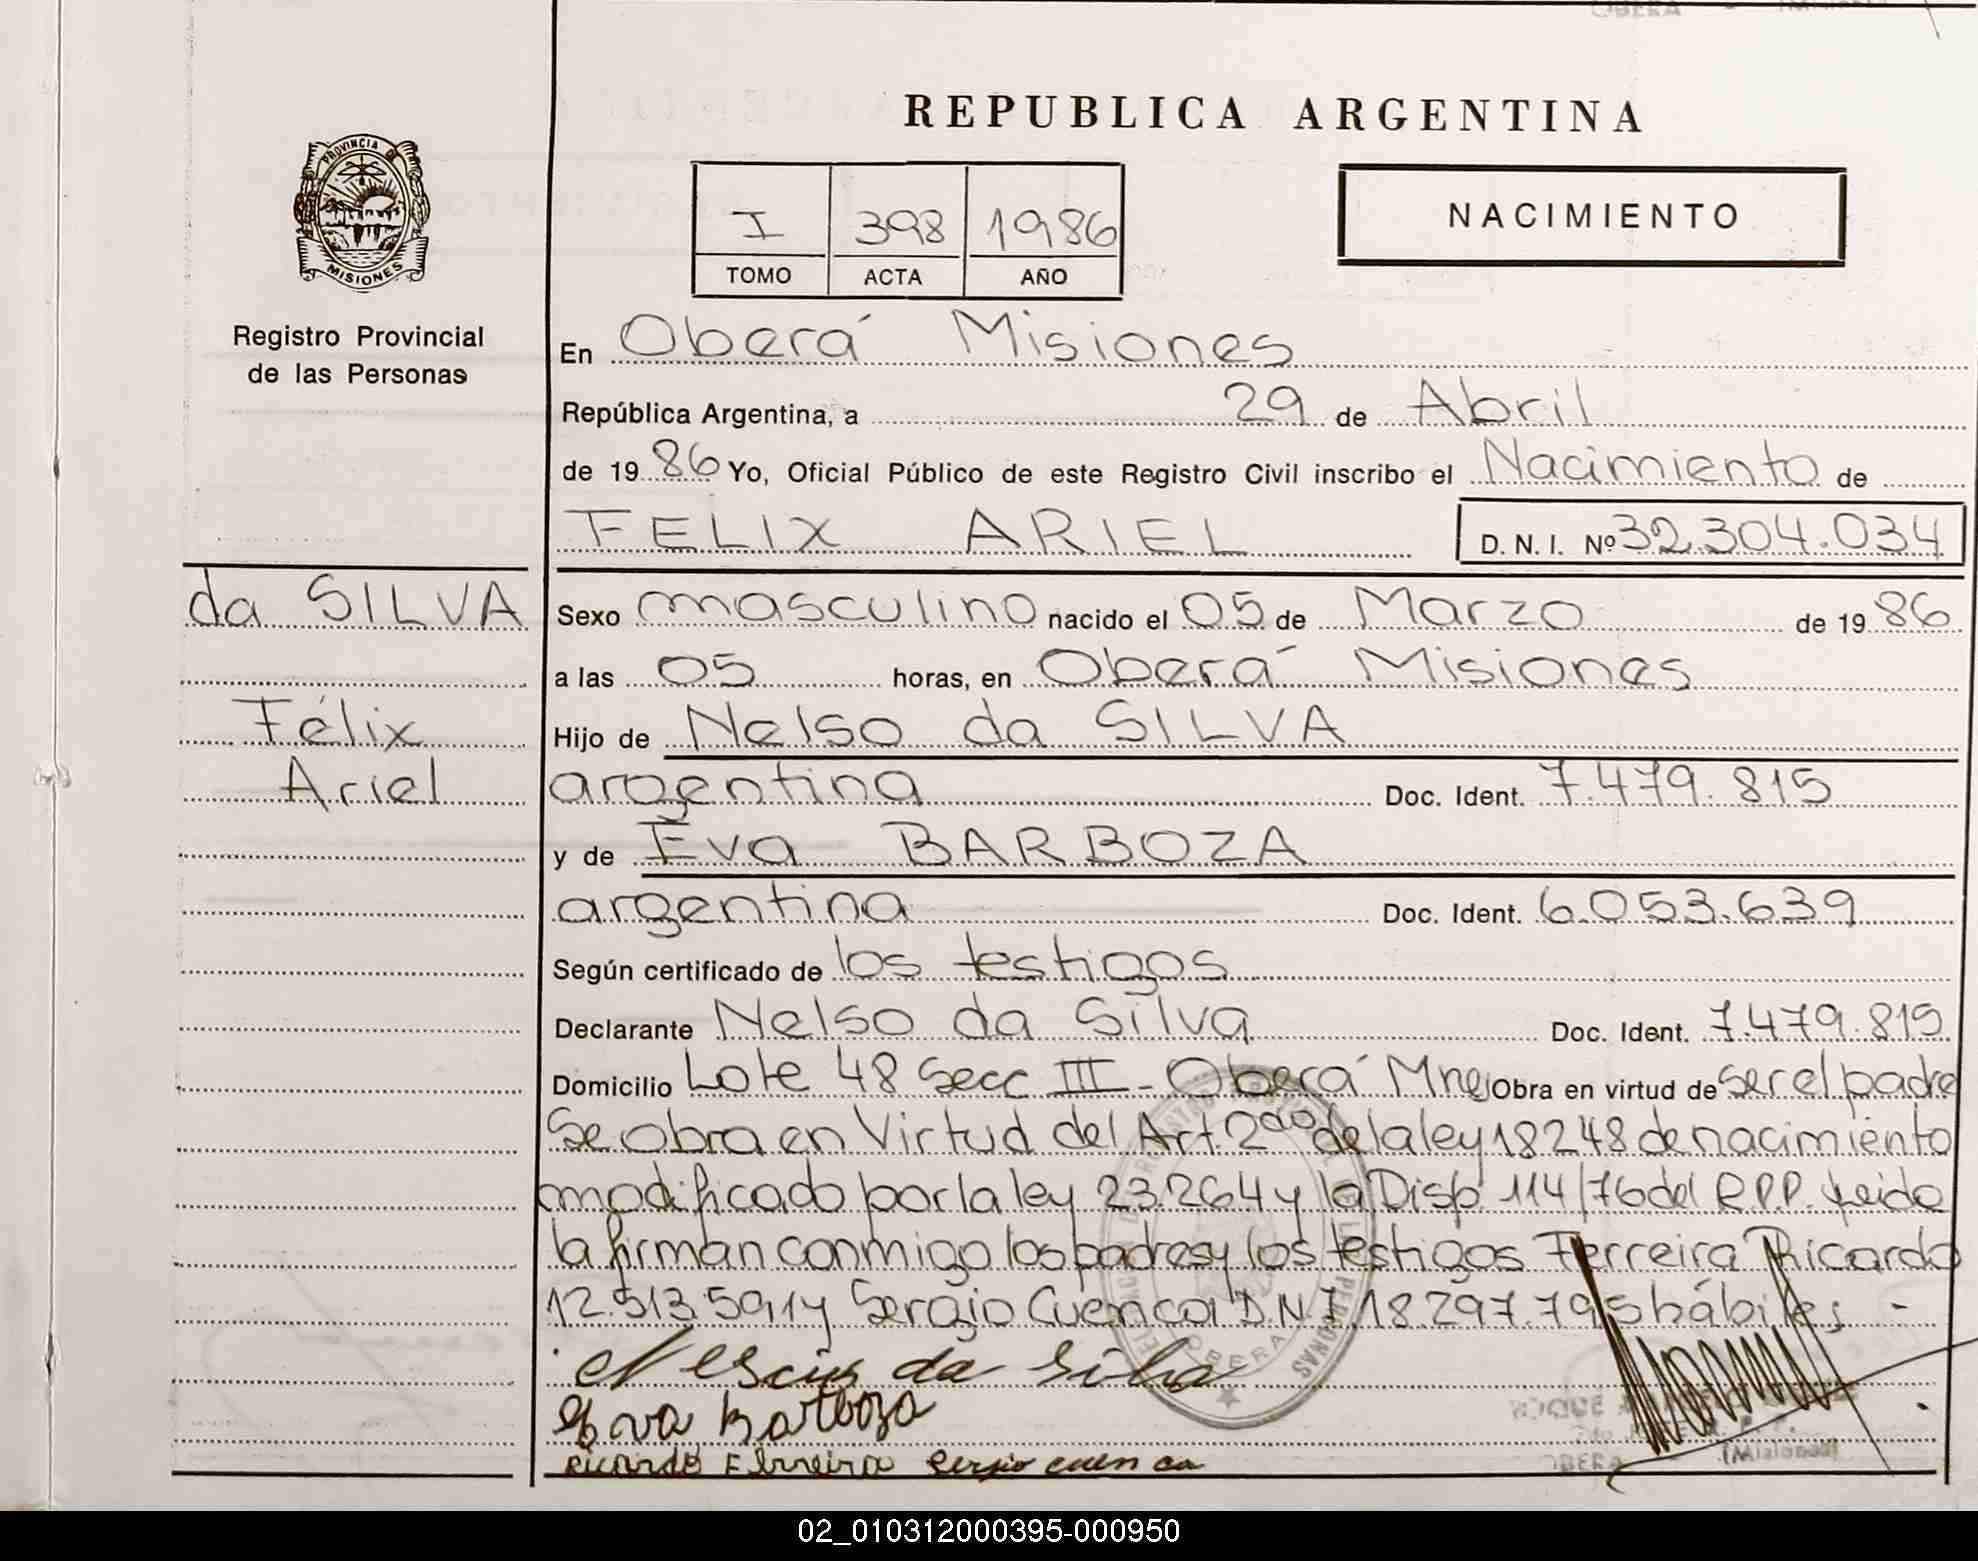 REPUBLICA ARGENTINA
PROVINCIA DE
MISIONES
Registro Provincial
de las Personas
I 398 1986
TOMO ACTA AÑO
NACIMIENTO
En Oberá Misiones
República Argentina, a 29 de Abril
de 1986 Yo, Oficial Público de este Registro Civil inscribo el Nacimiento de
FELIX ARIEL D. N. I. Nº 32.304.034
da SILVA
Félix
Ariel
Sexo masculino nacido el 05 de Marzo de 1986
a las 05 horas, en Oberá Misiones
Hijo de Nelso da SILVA
argentina Doc. Ident. 7.479.815
y de Eva BARBOZA
argentina Doc. Ident. 6.053.639
Según certificado de los testigos
Declarante Nelso da Silva Doc. Ident. 7.479.815
Domicilio Lote 48 Secc III - Oberá Mnes Obra en virtud de ser el padre
Se obra en Virtud del Art. 2do de la ley 18248 de nacimiento
modificado por la ley 23.264 y la Disp. 114/76 del R.P.P. Leida
la firman conmigo los padres y los testigos Ferreira Ricardo
12.513.591 y Sergio Cuenca D.N.I. 18.297.795 hábiles -
da Silva
Eva Barboza
Ricardo Ferreira Sergio cuenca
OBERA
PERSONAS
(Misiones)
02_010312000395-000950